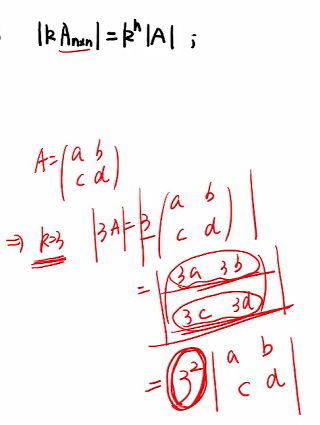 |kAₙₓₙ| = kⁿ|A| ;
A = (a b
c d)
⇒ k=3 |3A| = |3 (a b
c d)|
= |(3a 3b
3c 3d)|
= 3² |a b
c d|